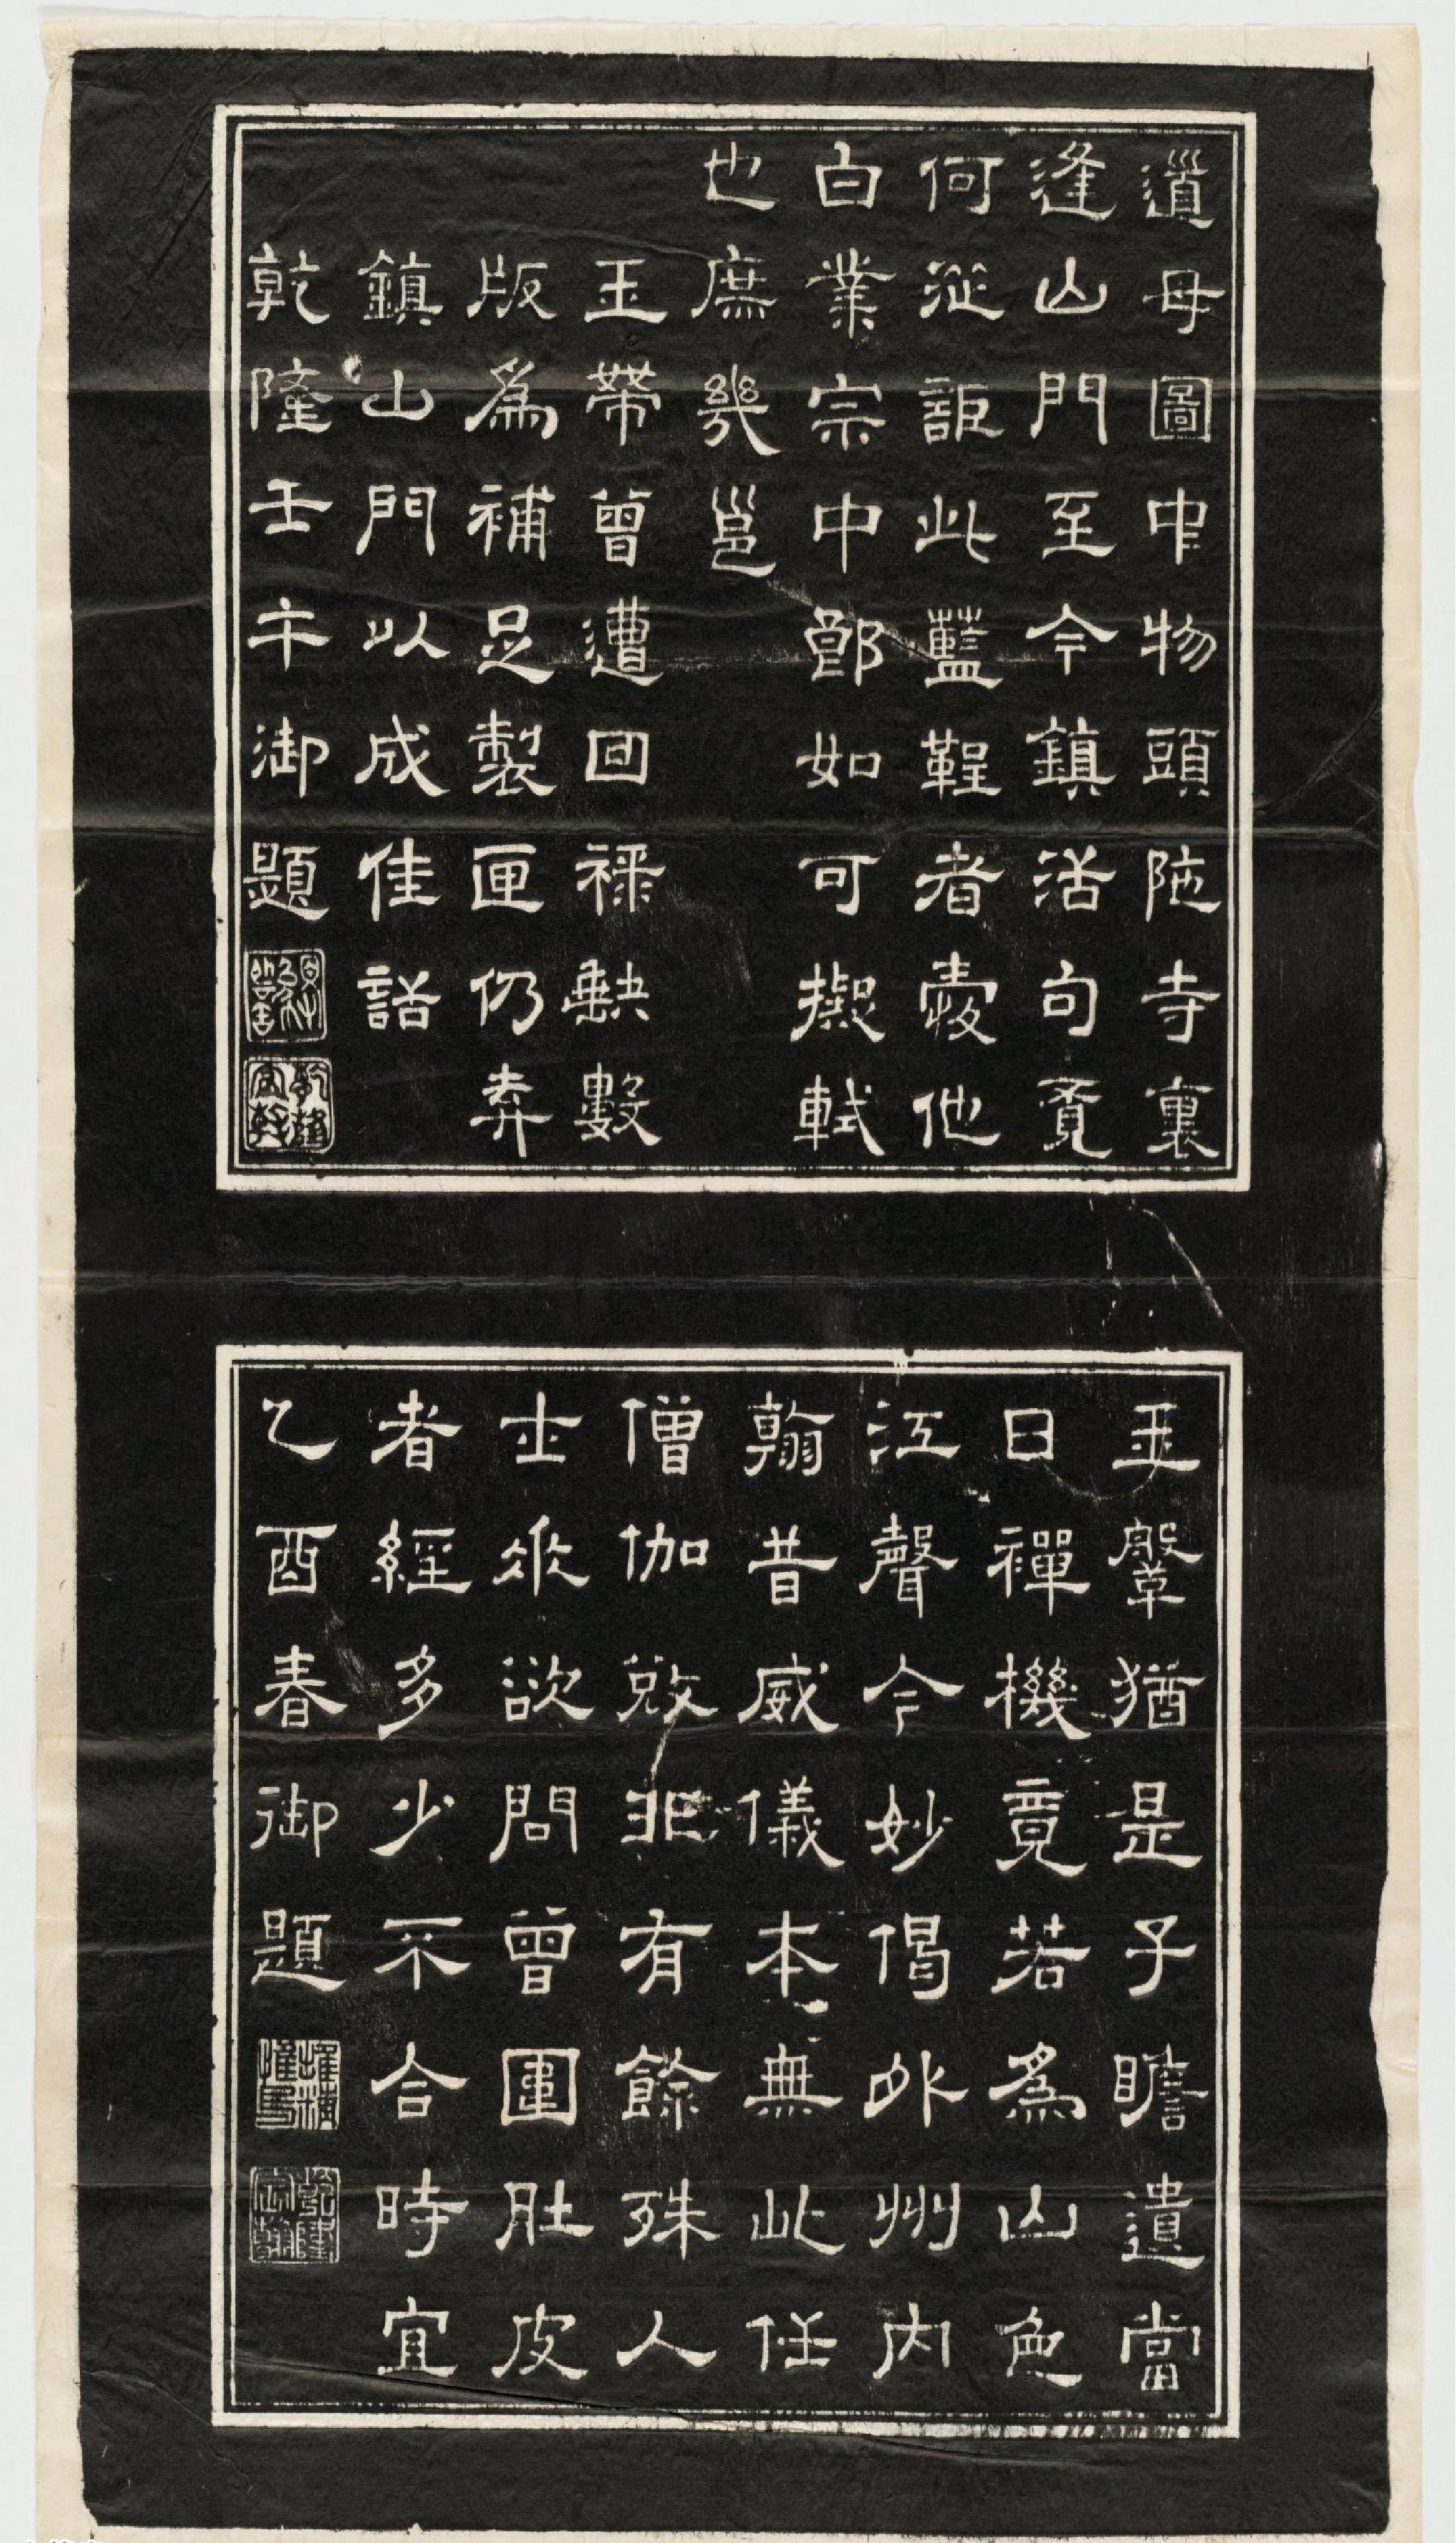 道母圖中物頭陁寺裏
逢山門至今鎮活句覓
何從詎此藍鞓者愛他
白業宗中郎如可擬軾
也庶幾邕
玉帶曾遭回祿缺數
版爲補足製匣仍弆
鎮山門以成佳話
乾隆壬午御題
乾隆宸翰
玉鞶猶是子瞻遺當
日禪機竟若爲山色
江聲今妙偈外州內
翰昔威儀本無此任
僧伽敚非有餘殊人
士衆欲問曾圍肚皮
者經多少不合時宜
乙酉春御題
惟精惟一
乾隆宸翰